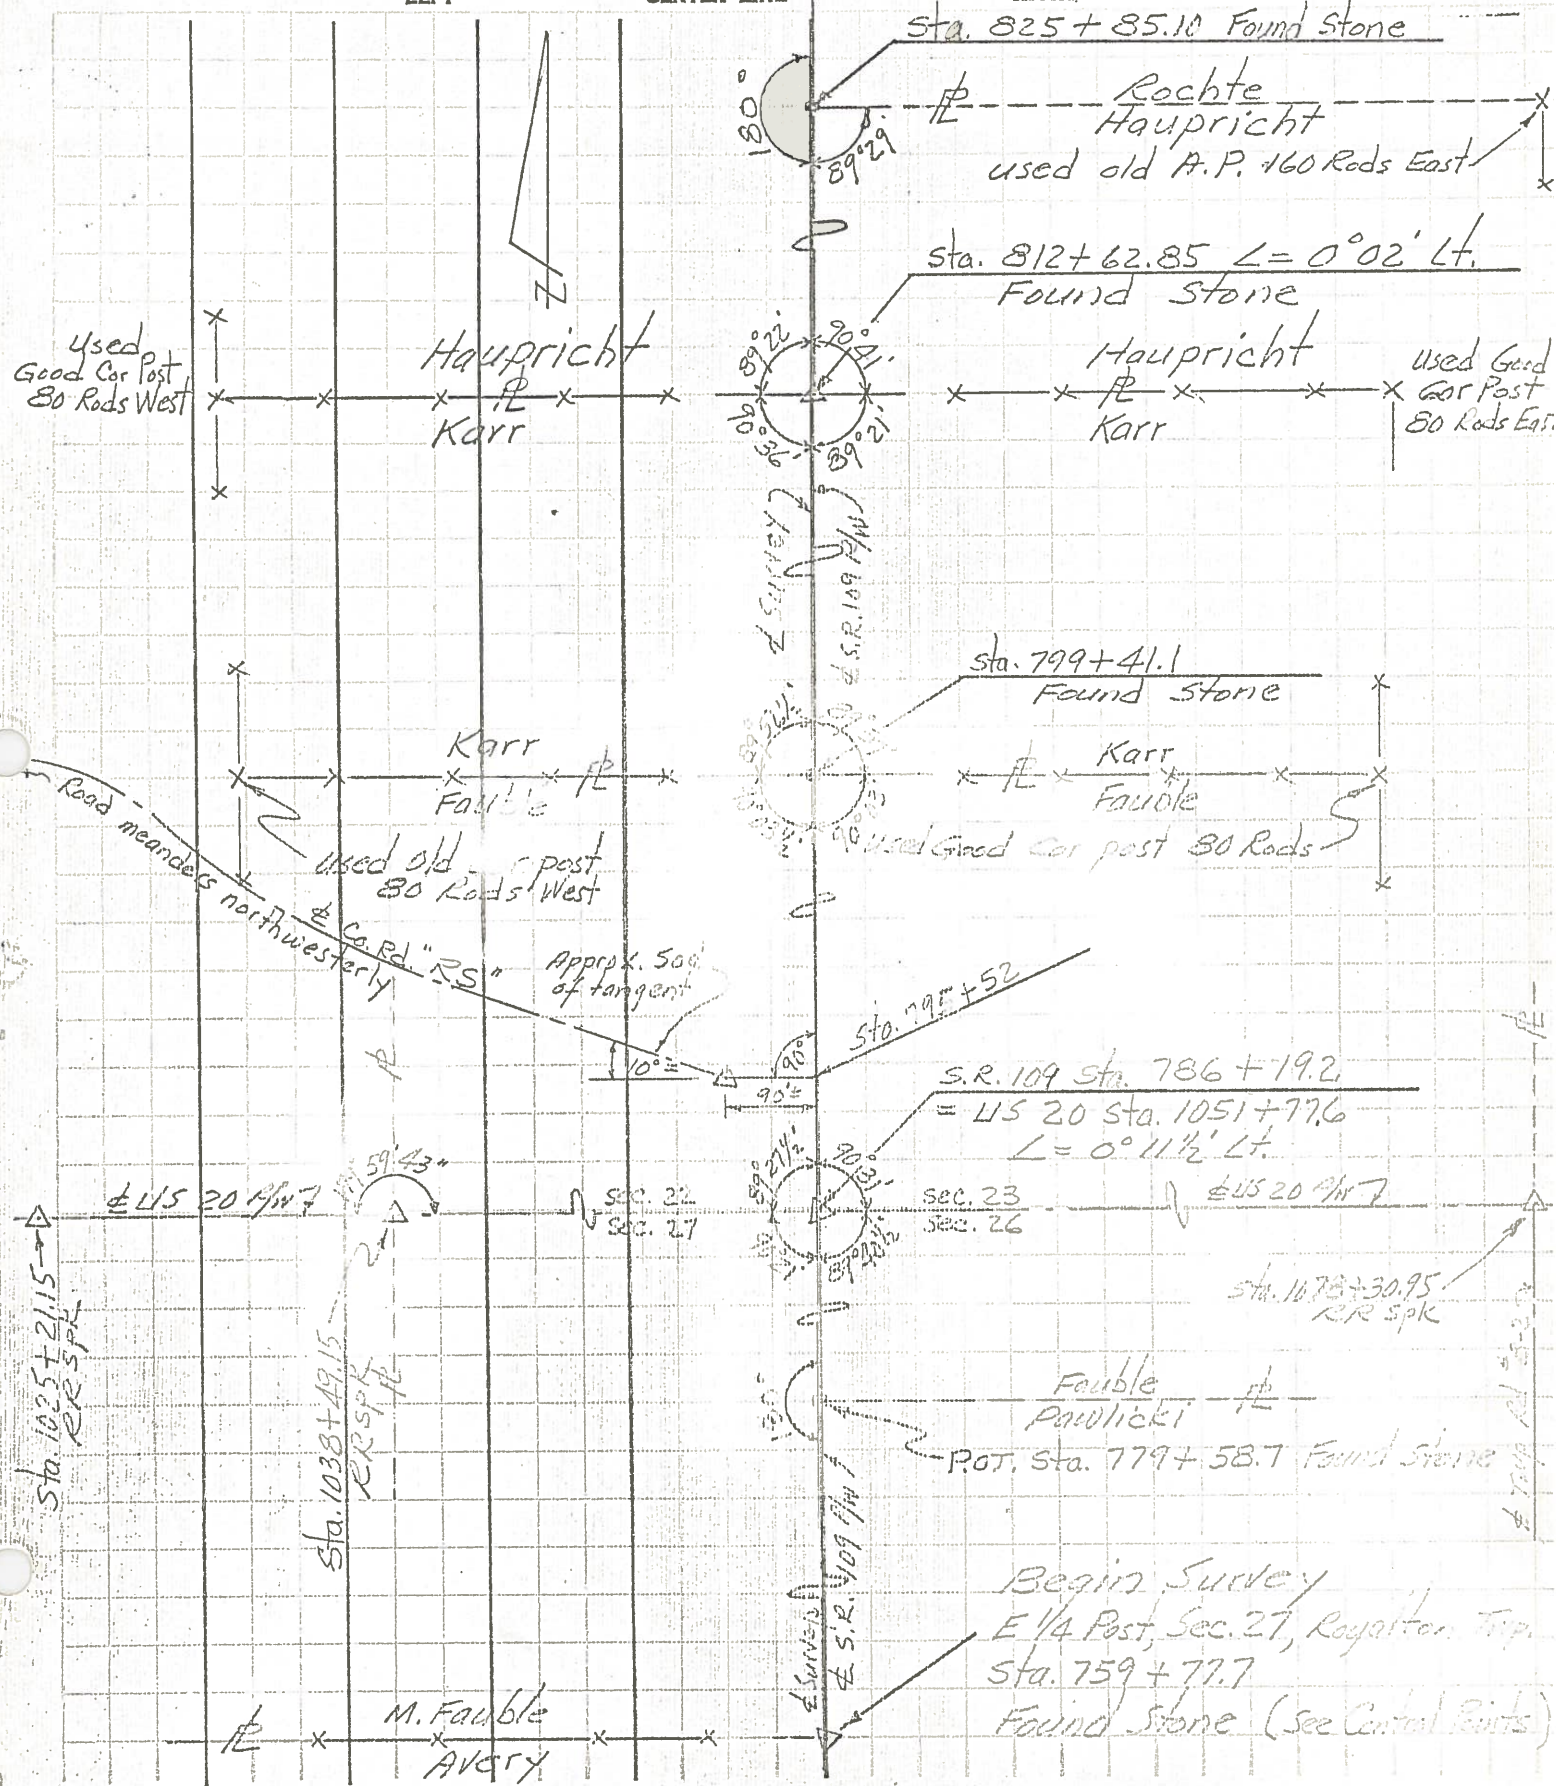 LEFT
CENTER LINE
Sta. 825 + 85.10 Found Stone
180°
89°29'
℄ Rochte
Haupricht
used old A.P. 160 Rods East
N
Sta. 812 + 62.85 ∠ = 0°02' Lt.
Found Stone
Used
Good Cor Post
80 Rods West
Haupricht
℄
Karr
89°22'
90°41'
90°36'
89°21'
Haupricht
℄
Karr
Used Good
Cor Post
80 Rods East
℄ Survey
℄ S.R. 109 R/W
Sta. 799+41.1
Found Stone
Karr
℄
Fauble
Karr
℄
Fauble
Used Good Cor post 80 Rods
Used old post
80 Rods West
Road meanders northwesterly
℄ Co. Rd. "RS"
Approx. 500
of tangent
10°±
90°
90'±
Sta. 795+52
℄
S.R. 109 Sta. 786 + 19.2
= US 20 Sta. 1051+77.6
∠ = 0°11½' Lt.
59'43"
℄ US 20 R/W
Sec. 22
Sec. 27
Sec. 23
Sec. 26
℄ US 20 R/W
Sta. 1025+21.15
RR Spk
Sta. 1038+49.15
RR Spk
℄
Sta. 1078+30.95
RR Spk
Fauble
℄
Pawlicki
P.O.T. Sta. 779+58.7 Found Stone
℄ Survey
℄ S.R. 109 R/W
Begin Survey
E 1/4 Post, Sec. 27, Royalton Twp.
Sta. 759 + 77.7
Found Stone (See Control Points)
M. Fauble
℄
Avery